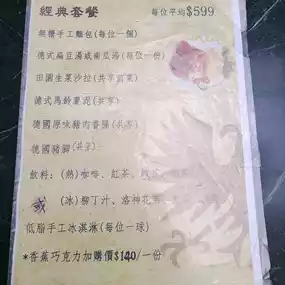 經典套餐 每位平均$599
無糖手工麵包(每位一個)
德式扁豆湯或南瓜湯(每位一份)
田園生菜沙拉(共享前菜)
德式馬鈴薯泥(共享)
德國原味豬肉香腸(共享)
德國豬腳(共享)
飲料: (熱)咖啡、紅茶、
或 (冰)柳丁汁、洛神花茶
低脂手工冰淇淋(每位一球)
*香蕉巧克力加購價$140/一份